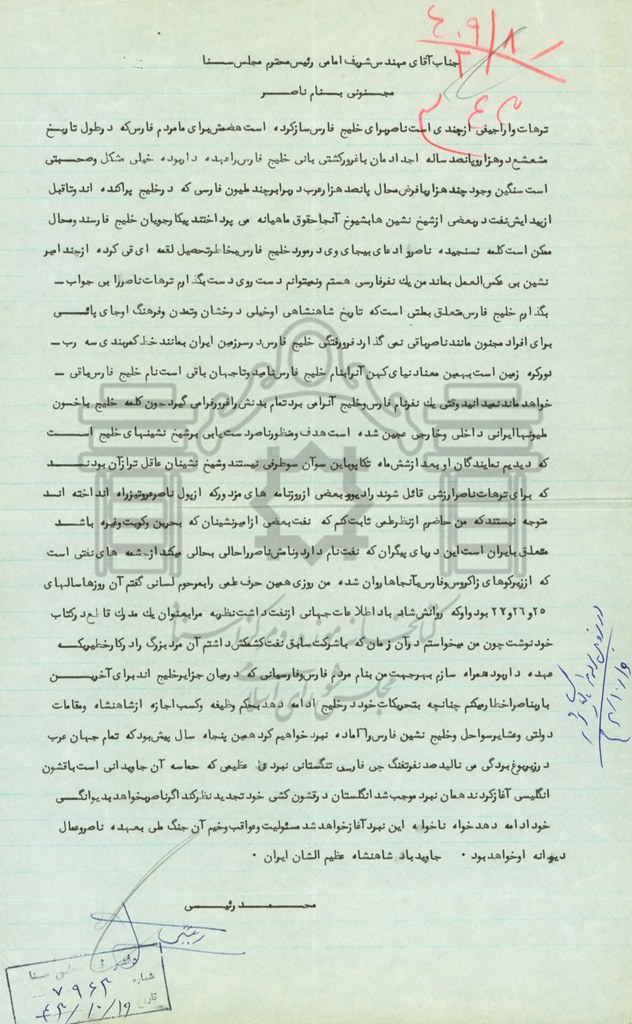 ۴۰۹/۸
۳
۳۴۳
جناب آقای مهندس شریف امامی رئیس محترم مجلس سنا
مجنونی بنام ناصر
ترهات واراجیفی ازچندی است ناصربرای خلیج فارس سازکرده است هضمش برای مامردم فارس که درطول تاریخ
مشعشع دوهزاروپانصد ساله اجدادمان باغرورکشتی بانی خلیج فارس راعهده داربوده خیلی مشکل وصحبتی
است سنگین وجود چند هزاریافرض محال پانصد هزارعرب دربرابرچند ملیون فارسی که درخلیج پراکنده اند وتاقبل
ازپیدایش نفت دربعضی ازشیخ نشین هابشیوخ آنجاحقوق ماهیانه می پرداختند پیکارجویان خلیج فارسند ومحال
ممکن است کلمه نسنجیده ناصرو ادعای بیجای وی درمورد خلیج فارس بخاطرتحصیل لقمه ای قی کرده ازچند امیر
نشین بی عکس العمل بماند من یك نفرفارسی هستم ونمیتوانم دست روی دست بگذارم ترهات ناصررا بی جواب ـ
بگذارم خلیج فارس متعلق بملتی است که تاریخ شاهنشاهی اوخیلی درخشان وتمدن وفرهنگ اوجای پائی
برای افراد مجنون مانند ناصرباقی نمی گذارد فرورفتگی خلیج فارس درسرزمین ایران بمانند خط کمربندی سه رب ـ
دورکره زمین است بهمین معنا دنیای کهن آنرابنام خلیج فارس نامید وتاجهان باقی است نام خلیج فارس باقی ـ
خواهد ماند نمیدانید وقتی یك نفرنام فارس وخلیج آنرامی برد تمام بدنش راغرورفرامی گیرد چون کلمه خلیج باخون
ملیونهاایرانی داخلی وخارجی عجین شده است هدف ومنظورناصردست یابی برشیخ نشینهای خلیج است
که دیدیم نمایندگان او بعد ازشش ماه تکاپوباین سوآن سوطرفی نبستند وشیخ نشینان عاقل ترازآن بودند
که برای ترهات ناصرارزشی قائل شوند رادیوو بعضی ازروزنامه های مزدورکه ازپول ناصرعروتیزراه انداخته اند
متوجه نیستند که من حاضرم ازنظرعلمی ثابت کنم که نفت بعضی ازامیرنشینان که بحرین وکویت وغیره باشد
متعلق بایران است این دریای بیکران که نفت نام دارد ونامش ناصرراحالی بحالی میکند ازچشمه های نفتی است
که اززیرکوهای زاگروس وفارس بآنجاهاروان شده من روزی همین حرف علمی رابمرحوم لسانی گفتم آن روزها سالهای
۲۵ و۲۶ و۲۷ بود واوکه روانش شاد باد اطلاعات جهانی ازنفت داشت نظریه مرابعنوان یك مدرك قاطع درکتاب
خود نوشت چون من میخواستم درآن زمان که باشرکت سابق نفت کشمکش داشتم آن مرد بزرگ رادرکارخطیریکه
عهده داربود همراه سازم بهرجهت من بنام مردم فارس وفارسیانی که درمیان جزایرخلیج اند برای آخرین
باربناصراخطارمیکنم چنانچه بتحریکات خود درخلیج ادامه دهد بحکم وظیفه وکسب اجازه ازشاهنشاه ومقامات
دولتی وعشایرسواحل وخلیج نشین فارس راآماده نبرد خواهیم کرد همین پنجاه سال پیش بود که تمام جهان عرب
درزیریوغ بردگی می نالید صد نفرتفنگ چی فارسی تنگستانی نبرد عظیمی که حماسه آن جاویدانی است باقشون
انگلیسی آغازکردند همان نبرد موجب شد انگلستان درقشون کشی خود تجدید نظرکند اگرناصربخواهد بدیوانگی
خود ادامه دهد خواه ناخواه این نبرد آغازخواهد شد مسئولیت وعواقب وخیم آن جنگ ملی بعهده ناصروعمال
دیوانه اوخواهد بود ۰ جاوید باد شاهنشاه عظیم الشان ایران ۰
محمد رئیس
شماره ۷۹۶۳
تاریخ ۴۳/۱۰/۱۹
کتابخانه موزه و مرکز اسناد
مجلس شورای اسلامی